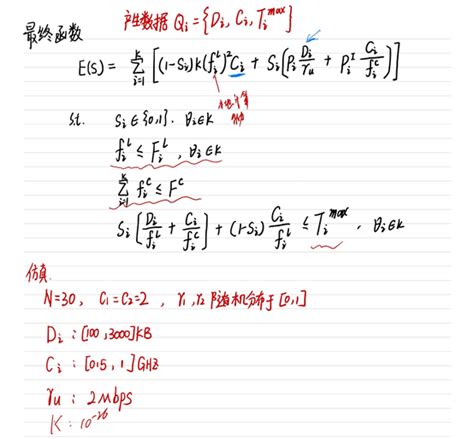 产生数据 Q_i = {D_i, C_i, T_i^max}
最终函数
E(S) = Σ_{i=1}^{K} [(1-S_i)k(f_i^L)^2 C_i + S_i(P_i D_i/r_u + P_i^I C_i/f_i^c)]
本地计算
s.t. S_i ∈ {0,1}, ∀i∈K
f_i^L ≤ F_i^L, ∀i∈K
Σ_{i=1}^{K} f_i^c ≤ F^c
S_i [D_i/f_i^L + C_i/f_i^c] + (1-S_i) C_i/f_i^L ≤ T_i^max, ∀i∈K
仿真
N=30, C_1=C_2=2, r_1, r_2 随机分布于[0,1]
D_i : [100, 3000]KB
C_i : [0.5, 1]GHZ
r_u : 2Mbps
K : 10^-26